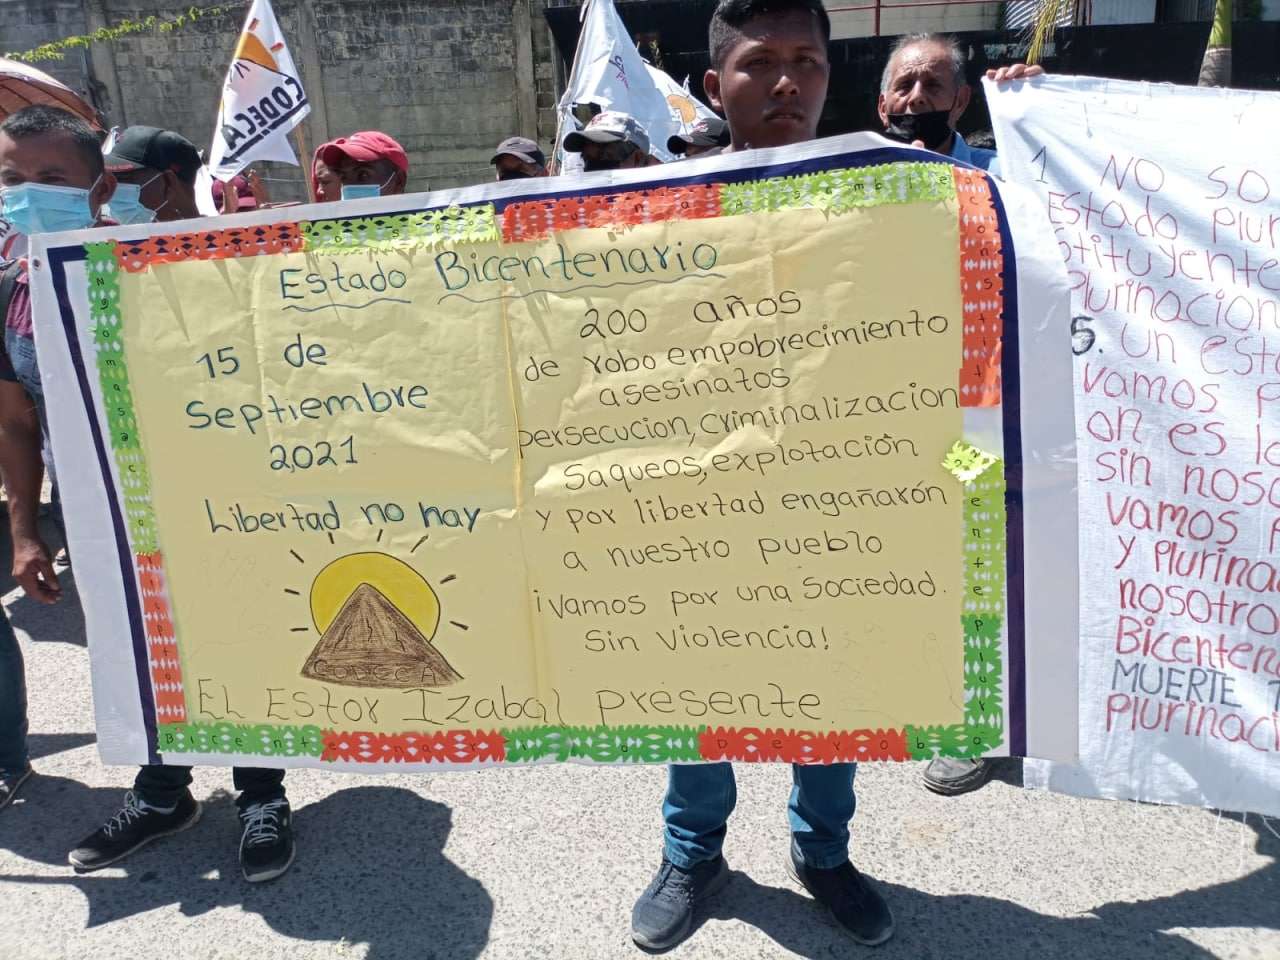 CODECA
Estado Bicentenario
15 de
Septiembre
2021
Libertad no hay
CODECA
200 años
de robo empobrecimiento
asesinatos
persecucion, criminalizacion
Saqueos, explotación
y por libertad engañarón
a nuestro pueblo
¡Vamos por una Sociedad.
Sin violencia!
El Estor Izabal presente.
Bicentenario De robo
1 NO SO
Estado plur
tituyente
plurinacion
5. un esta
vamos p
on es la
sin noso
vamos p
y plurina
nosotro
Bicenten
MUERTE
plurinaci